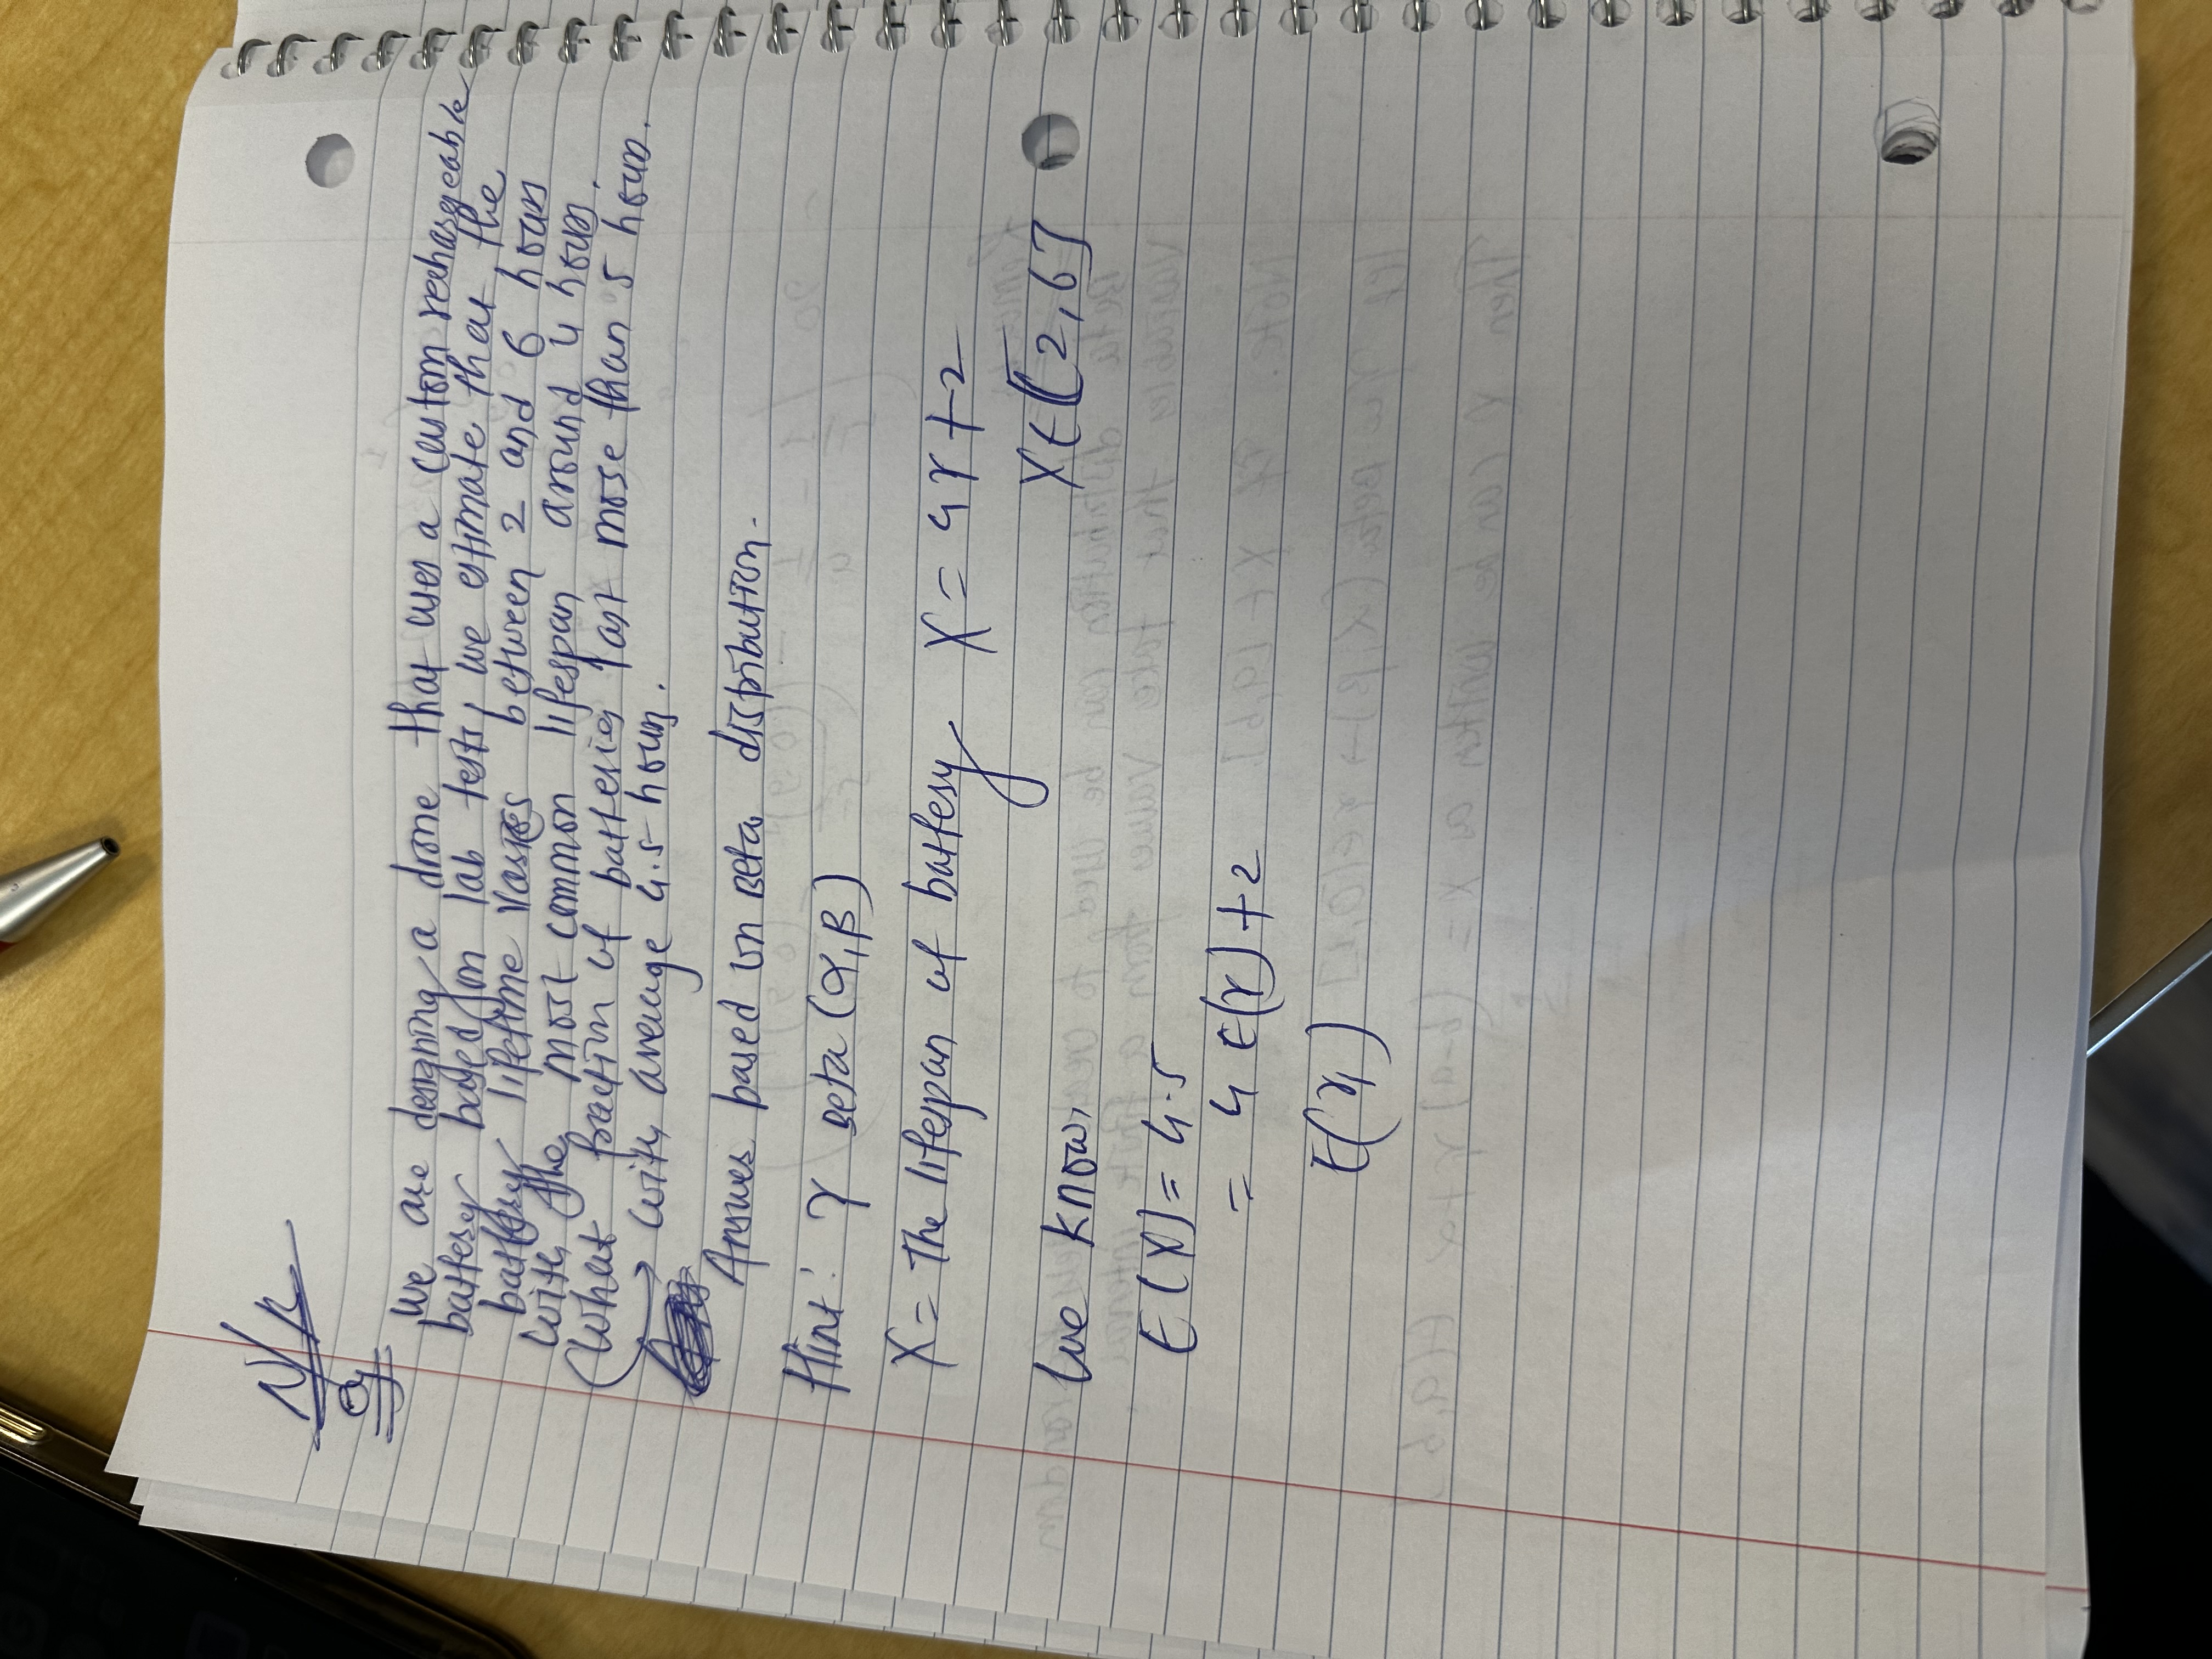 N/R
Q
We are designing a drone that uses a custom rechargeable
battery based on lab tests, we estimate that the
battery lifetime varies between 2 and 6 hours
with the most common lifespan around 4 hours.
What fraction of batteries last more than 5 hours.
→ with average 4.5 hours.
Answer based on Beta distribution.
Hint: Y Beta (α, β)
X = The lifespan of battery X = 4Y + 2
X ∈ [2, 6]
We know,
E(X) = 4.5
= 4 E(Y) + 2
E(Y)